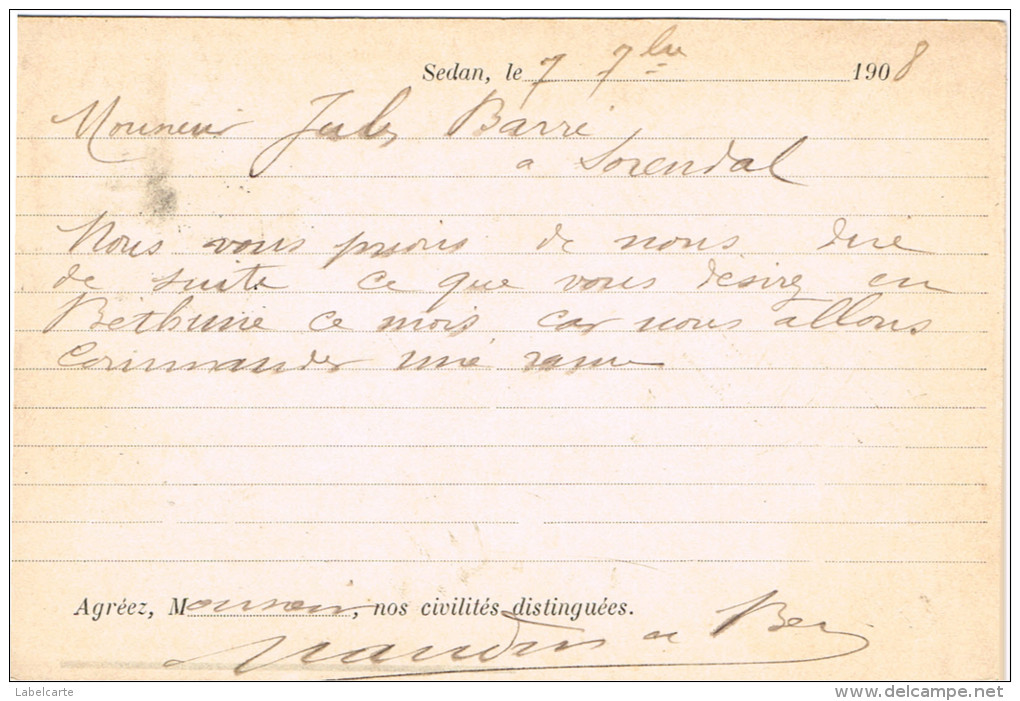 Sedan, le 7 7bre 1908
Monsieur Jules Barré
a Sorendal
Nous vous prions de nous dire
de suite ce que vous désirez en
Béthune ce mois car nous allons
commander une rame
Agréez, Monsieur, nos civilités distinguées.
Labelcarte
www.delcampe.net